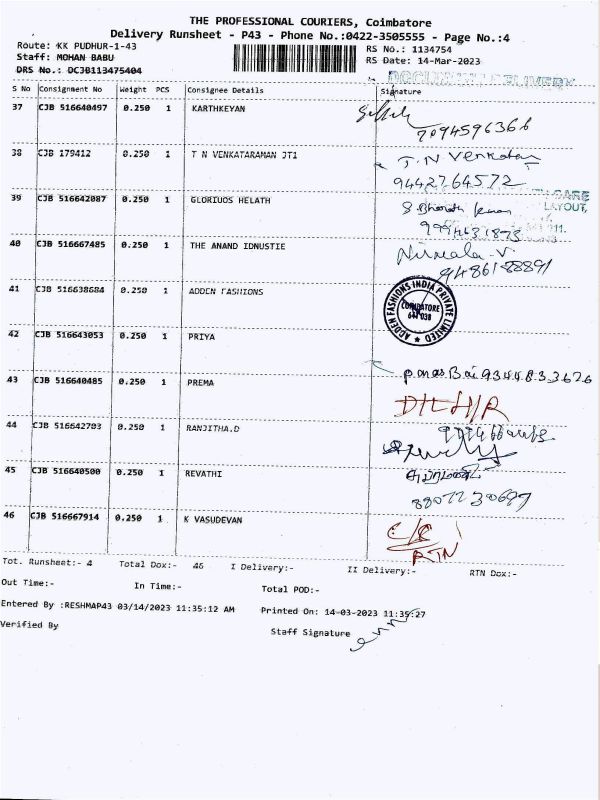 THE PROFESSIONAL COURIERS, Coimbatore
Delivery Runsheet - P43 - Phone No.:0422-3505555 - Page No.:4
Route: KK PUDHUR-1-43
RS No.: 1134754
Staff: MOHAN BABU
RS Date: 14-Mar-2023
DRS No.: DCJB113475404
DOCUMENT DELIVERY
S No Consignment No Weight PCS Consignee Details Signature
37 CJB 516640497 0.250 1 KARTHKEYAN
7094596366
38 CJB 179412 0.250 1 T N VENKATARAMAN JT1 T.N Venkatan
9442764572
39 CJB 516642087 0.250 1 GLORIUOS HELATH
LAYOUT,
40 CJB 516667485 0.250 1 THE ANAND IDNUSTIE Nirmala.V
41 CJB 516638684 0.250 1 ADDEN FASHIONS
ADDEN FASHIONS INDIA PRIVATE LIMITED
COIMBATORE
641 038
42 CJB 516643053 0.250 1 PRIYA
9344833626
43 CJB 516640485 0.250 1 PREMA
44 CJB 516642703 0.250 1 RANJITHA.D
45 CJB 516640500 0.250 1 REVATHI
46 CJB 516667914 0.250 1 K VASUDEVAN
RTN
Tot. Runsheet:- 4 Total Dox:- 46 I Delivery:- II Delivery:- RTN Dox:-
Out Time:- In Time:- Total POD:-
Entered By :RESHMAP43 03/14/2023 11:35:12 AM Printed On: 14-03-2023 11:35:27
Verified By Staff Signature